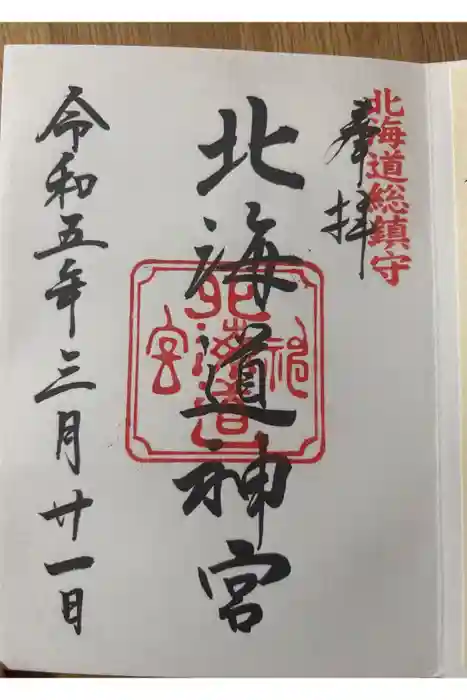 北海道総鎮守
奉拝
北海道神宮
北海道神宮
令和五年三月廿一日